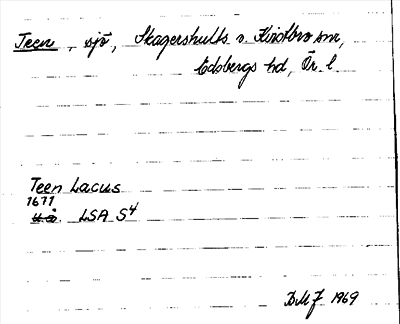 Teen, sjö, Skagershults o. Kvistbro snr,
Edsbergs hd, Ör. l.
Teen Lacus
1671
u.å. LSA S4
DMJ 1969